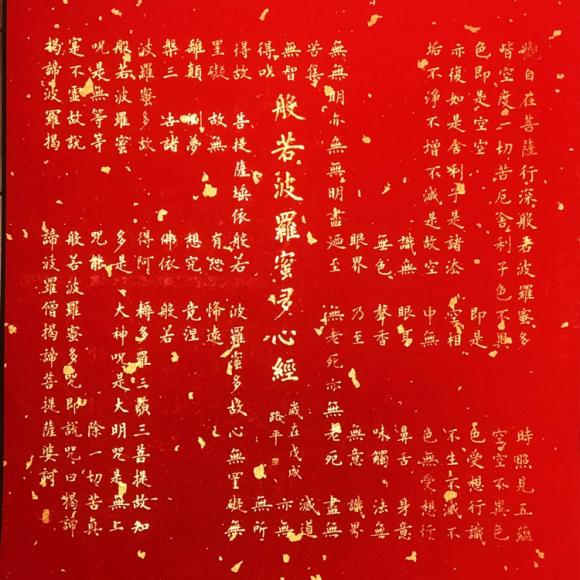 觀自在菩薩行深般若波羅蜜多時照見五蘊
皆空度一切苦厄舍利子色不異空空不異色
色即是空空即是色受想行識
亦復如是舍利子是諸法空相不生不滅不
垢不淨不增不減是故空中無色無受想行
識無眼耳鼻舌身意
無色聲香味觸法無
眼界乃至無意識界
無無明亦無無明盡迺至無老死亦無老死盡無
苦集滅道
無智亦無
得以無所
般若波羅蜜多心經
歲在戊戌
路平
得故菩提薩埵依般若波羅蜜多故心無罣礙無
罣礙故無有恐怖遠
離顛倒夢想究竟涅
槃三世諸佛依般若
波羅蜜多故得阿耨多羅三藐三菩提故知
般若波羅蜜多是大神咒是大明咒是無上
咒是無等等咒能除一切苦真
實不虛故說般若波羅蜜多咒即說咒曰揭諦
揭諦波羅揭諦波羅僧揭諦菩提薩婆訶